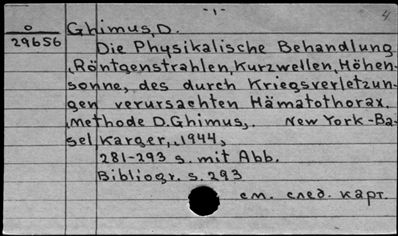 -1-
4
0
29656
Ghimus, D.
Die Physikalische Behandlung
,Röntgenstrahlen, Kurzwellen, Höhen-
sonne, des durch Kriegsverletzun-
gen verursachten Hämatothorax.
,Methode D. Ghimus,. New York-Ba-
sel, Karger,, 1944,
281-293 s. mit Abb.
Bibliogr. s. 293
см. след. карт.